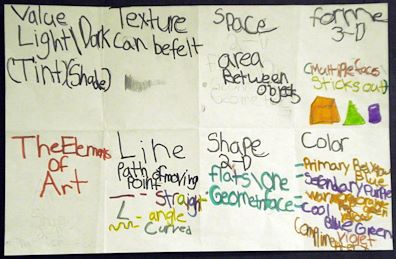 Value
Light\Dark
(Tint)(Shade)
Texture
Can be felt
Space
area
Between
objects
forme
3-D
(Multiple faces)
Sticks out
The Elements
of
Art
Line
Path of moving
Point
- Straight
- angle
Curved
Shape
2-D
flats\one
Geometric face
Color
Primary Red Yellow
Blue
Secondary Purple
orange
Cool
Blue Green
Violet